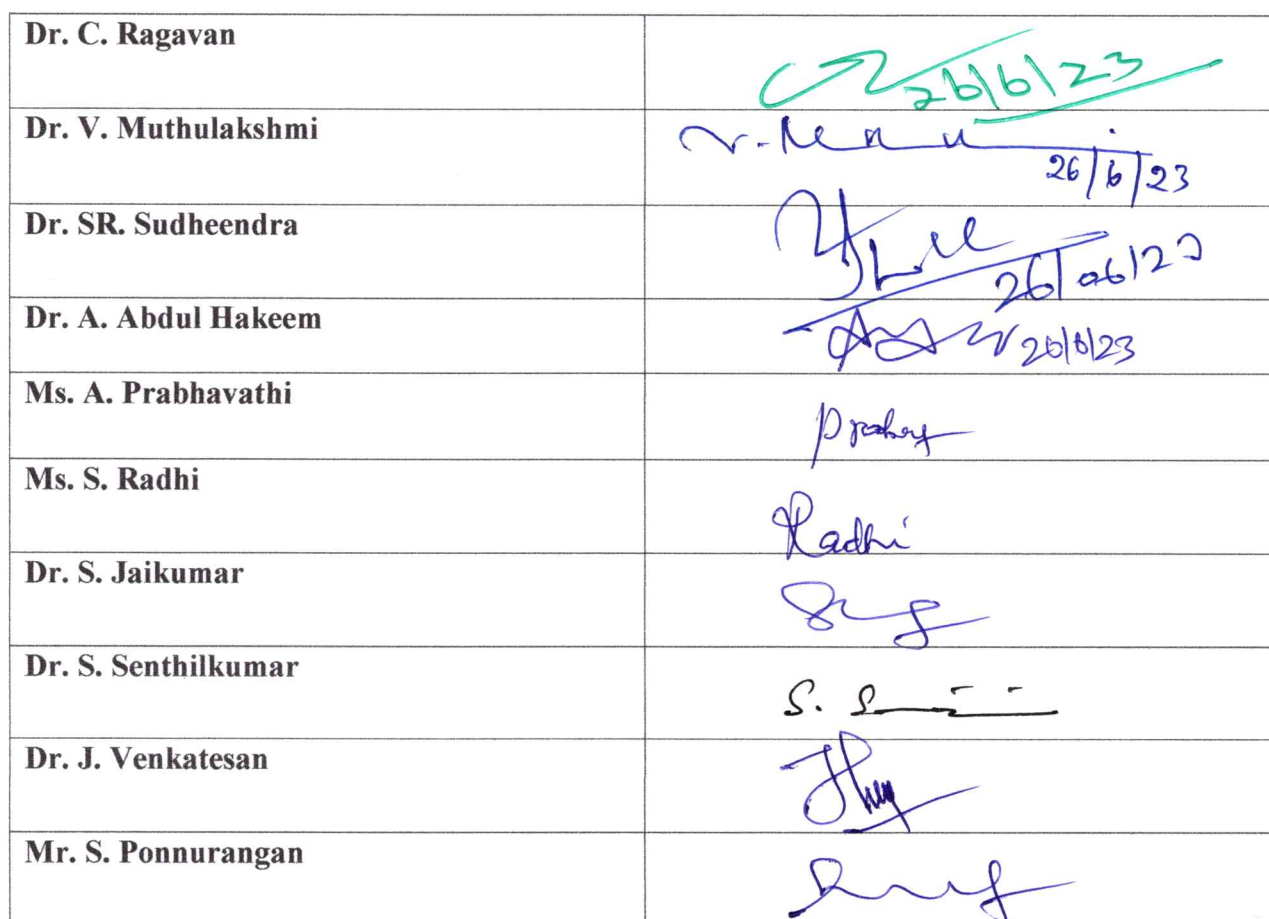 Dr. C. Ragavan
26/6/23
Dr. V. Muthulakshmi
26/6/23
Dr. SR. Sudheendra
26/06/23
Dr. A. Abdul Hakeem
26/6/23
Ms. A. Prabhavathi
Ms. S. Radhi
Radhi
Dr. S. Jaikumar
Dr. S. Senthilkumar
Dr. J. Venkatesan
Mr. S. Ponnurangan